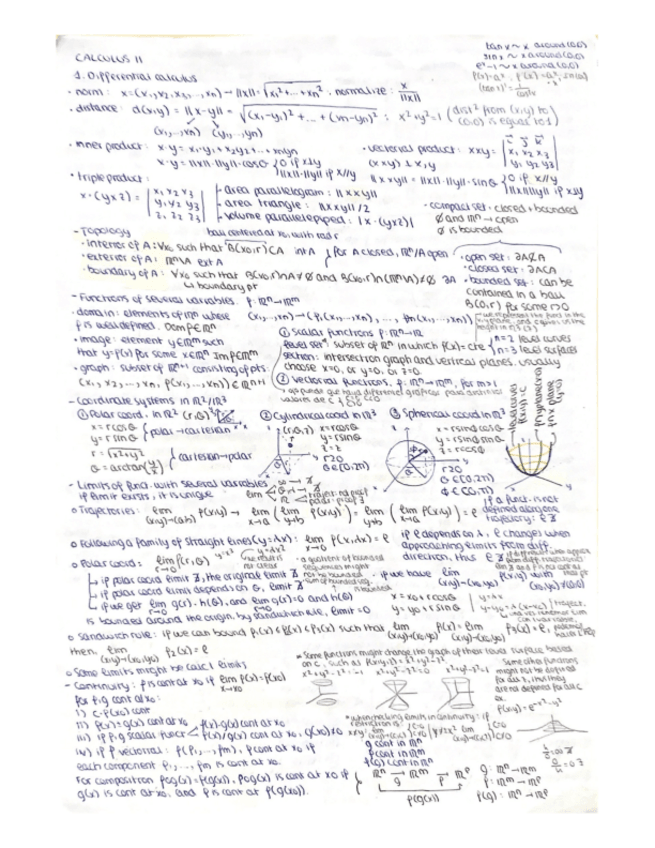 CALCULUS II
tan x ~ x around (0,0)
sin x ~ x around (0,0)
e^x-1 ~ x around (0,0)
1. Differential calculus
· norm: x=(x₁,x₂,x₃,...,xn) → ||x||=√(x₁²+...+xn²), normalize: x/||x||
· distance: d(x,y) = ||x-y|| = √((x₁-y₁)²+...+(xn-yn)²); x²+y²=1 (dist² from (x,y) to
(x₁,...,xn) (y₁,...,yn) (0,0) is equal to 1)
· inner product: x·y = x₁·y₁+x₂y₂+...+xnyn
x·y = ||x||·||y||·cosθ { 0 if x⊥y
||x||·||y|| if x//y
· vectorial product: x×y = | i j k
x₁ x₂ x₃
y₁ y₂ y₃ |
(x×y) ⊥ x,y
||x×y|| = ||x||·||y||·sinθ { 0 if x//y
||x||||y|| if x⊥y
· triple product:
x·(y×z) = | x₁ x₂ x₃
y₁ y₂ y₃
z₁ z₂ z₃ |
- area parallelogram: ||x×y||
- area triangle: ||x×y||/2
- volume parallelepiped: |x·(y×z)|
· compact set: closed + bounded
∅ and ℝⁿ → open
∅ is bounded
- Topology
ball centered at x₀, with rad r
· interior of A: ∀x₀ such that B(x₀,r)⊂A int A
· exterior of A: ℝⁿ\A ext A
for A closed, ℝⁿ/A open
· boundary of A: ∀x₀ such that B(x₀,r)∩A≠∅ and B(x₀,r)∩(ℝⁿ\A)≠∅ ∂A
↳ boundary pt
· open set: ∂A⊄A
· closed set: ∂A⊂A
· bounded set: can be
contained in a ball
B(0,r) for some r>0
- Functions of several variables. f: ℝⁿ→ℝᵐ
· domain: elements of ℝⁿ where (x₁,...,xn) → (f₁(x₁,...,xn),..., fm(x₁,...,xn))
f is well defined. Dom f∈ℝⁿ
· image: element y∈ℝᵐ such
that y=f(x) for some x∈ℝⁿ Im f⊂ℝᵐ
· graph: subset of ℝⁿ⁺¹ consisting of pts:
(x₁,x₂,...,xn, f(x₁,...,xn)) ∈ ℝⁿ⁺¹
① Scalar functions f: ℝⁿ→ℝ
level set: subset of ℝⁿ in which f(x)=cte { n=2 level curves
n=3 level surfaces
section: intersection graph and vertical planes, usually
choose x=0, or y=0, or z=0.
② Vectorial functions, f: ℝⁿ→ℝᵐ, for m>1
- Coordinate systems in ℝ²/ℝ³
① Polar coord. in ℝ² (r,θ)
x = r cosθ
y = r sinθ
polar → cartesian
r = √(x²+y²)
θ = arctan(y/x)
cartesian → polar
② Cylindrical coord in ℝ³
(r,θ,z) x=r cosθ
y=r sinθ
z=z
r≥0
θ∈[0,2π)
③ Spherical coord in ℝ³
x=r sinφ cosθ
y=r sinφ sinθ
z=r cosφ
r≥0
θ∈[0,2π)
φ∈[0,π]
level curves
f(x,y)=c
f∩ plane
(y=0)
- Limits of funct. with several variables
if limit exists, it is unique
○ Trajectories: lim (x,y)→(a,b) f(x,y) → lim x→a (lim y→b f(x,y)) = lim y→b (lim x→a f(x,y)) = ℓ
if a funct. is not
defined along one
trajectory: ∄
○ Following a family of straight lines (y=λx): lim x→0 f(x,λx) = ℓ
if ℓ depends on λ, ℓ changes when
approaching limits from diff.
direction, thus ∄
○ Polar coord: lim r→0 f(r,θ)
↳ if polar coord limit ∄, the original limit ∄
↳ if polar coord limit depends on θ, limit ∄
↳ if we get lim r→0 g(r)·h(θ), and lim r→0 g(r)=0 and h(θ)
is bounded around the origin, by sandwich rule, limit=0
· if we have lim (x,y)→(x₀,y₀) f(x,y) with
(x₀,y₀)≠(0,0)
x = x₀+r cosθ
y = y₀+r sinθ
○ Sandwich rule: if we can bound f₁(x)≤f₂(x)≤f₃(x) such that lim (x,y)→(x₀,y₀) f₁(x) = lim (x,y)→(x₀,y₀) f₃(x) = ℓ,
then, lim (x,y)→(x₀,y₀) f₂(x) = ℓ
○ Some limits might be calc 1 limits
* Some functions might change the graph of their level surface based
on c, such as f(x,y,z)=x²+y²-z²
x²+y²-z²=-1 x²+y²-z²=0 x²+y²-z²=1
Some other functions
might not be defined
for all z, thus they
are not defined for all c
ex.
f(x,y)=e^-x²-y²
- Continuity: f is cont at x₀ if lim x→x₀ f(x)=f(x₀)
for f,g cont at x₀:
i) c·f(x) cont
ii) f(x)+g(x) cont at x₀
iii) if f,g scalar funct < f(x)·g(x) cont at x₀
f(x)/g(x) cont at x₀, g(x₀)≠0
iv) if f vectorial: f(f₁,...,fm), f cont at x₀ if
each component f₁,...,fm is cont at x₀.
For composition f∘g(x)=f(g(x)), f∘g(x) is cont at x₀ if
g(x) is cont at x₀, and f is cont at f(g(x₀)).
* when checking limits in continuity: if
g cont in ℝⁿ
f cont in ℝᵐ
f(g) cont in ℝⁿ
ℝⁿ →g ℝᵐ →f ℝᵖ
f(g(x))
g: ℝⁿ→ℝᵐ
f: ℝᵐ→ℝᵖ
f(g): ℝⁿ→ℝᵖ